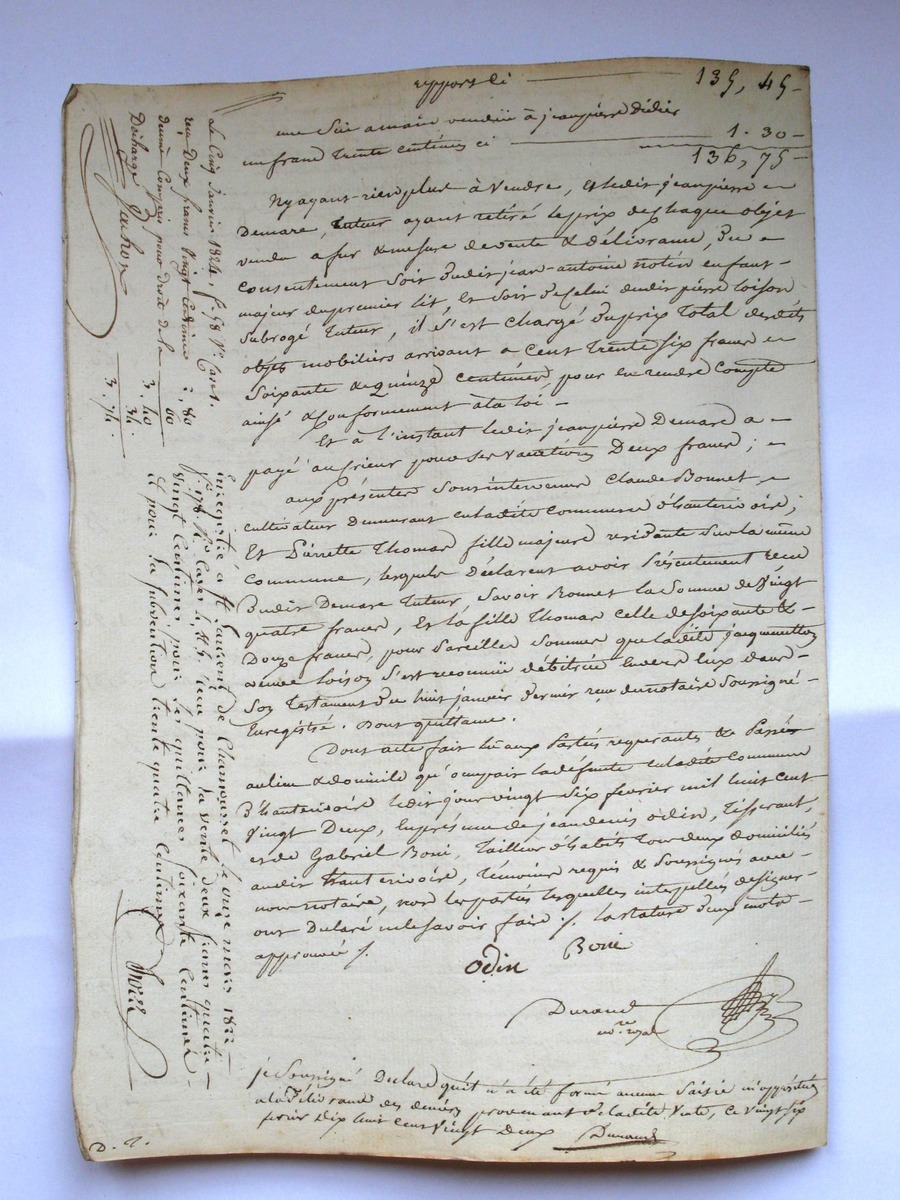 report ci 135, 45
une Sie a main vendue à jeanpierre Didier
un franc Trente centimes ci 1. 30
136, 75
N'y ayant rien plus à Vendre, et ledit jeanpierre
Demare, tuteur ayant retiré le prix de Chaque objet
vendu a fur & mesure de vente & délivrance, Du
consentement soit dudit jean-antoine notin enfant
majeur du premier lit, et soit de celui dudit pierre loison
Subrogé tuteur, il s'est chargé du prix total desdits
objets mobiliers arrivant a cent trente six francs
Soixante & quinze centimes, pour en rendre compte
ainsi & conformement à la loi
Et à l'instant ledit jeanpierre Demare a
payé au crieur pour ses vacations Deux francs ;
aux présentes sont intervenus Claude Bonnet,
cultivateur demeurant en ladite commune d'hauterivoire ;
Et Pierrette Thomas fille majeure residante sur la même
Commune, lesquels déclarent avoir présentement reçu
Dudit Demare tuteur, savoir Bonnet la somme de Vingt
quatre francs, et la fille Thomas celle de soixante &
Douze francs, pour pareilles sommes que ladite
veuve loison s'est reconnüe débitrice envers eux dans
Son Testament du huit janvier dernier reçu du notaire soussigné
Enregistré. Dont quittance.
Dont acte fait lu aux Parties requerantes & Passé
au lieu & domicile qu'occupait la défunte en ladite commune
d'hauterivoire ledit jour vingt six février mil huit cent
Vingt Deux, En présence de jean denis odin, Tisserant,
et de Gabriel Boni, tailleur d'habits tous deux domiciliés
audit hauterivoire, témoins requis & soussignés avec
nous notaire, non les parties lesquelles interpellées de signer
ont déclaré ne le savoir faire ./. la rature d'un mot
approuvée ./.
odin Boni
Durand
no.re royal
je Soussigné Declare qu'il n'a été formé aucune Saisie ni opposition
a la délivrance des deniers provenant de ladite Vente, ce vingt six
février Dix huit cent Vingt deux Durand
D. D.
Enregistré a St Laurent de Chamousset le onze mars 1822
reçu pour la vente deux francs quatre
Vingt Centimes, pour les quittances soixante Centimes
et pour la subvention trente quatre Centimes
Le Cinq janvier 1824,
reçu Deux francs Vingt Centimes
dixième Compris pour Droit de la
Décharge
2, 80
60
3. 40
34
3. 74